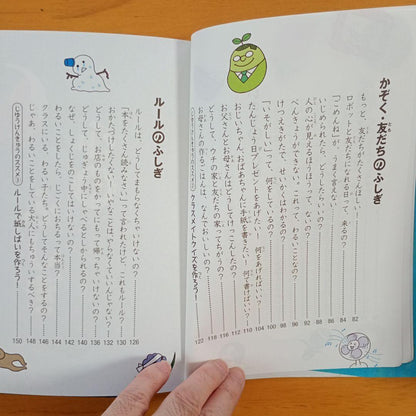 かぞく・友だちのふしぎ
もっと、友だちがたくさんほしい！ 82
ロボットと友だちになれる日って、来るの？ 84
「ごめんね」が、うまく言えない 86
いじめられたら、どうしたらいいの？ 88
人の心が見えるほうほうはないの？
べんきょうができない。これって、わるいことなの？
けつえきがたで、せいかくはわかるの？ 98
「いそがしい」って、何をしているの？ 100
たんじょう日プレゼントをあげたい！何をあげればいい？ 104
おじいちゃん、おばあちゃんに手紙を書きたい！何て書けばいい？ 110
お父さんとお母さんはどうしてけっこんしたの？ 112
どうして、ウチの家と友だちの家ってちがうの？ 116
お母さんの作るごはんは、なんでおいしいの？ 118
じゆうけんきゅうのススメ クラスメイトクイズを作ろう！ 122
ルールのふしぎ
ルールは、どうしてまもらなくちゃいけないの？ 126
「本をたくさん読みなさい」って言われたけど、これもルール？ 130
おかたづけしたくないのなら、やらなくていいんじゃない？ 132
どうして、お店のものをかってにもって帰っちゃいけないの？
どうして、じゅぎょう中にしゃべるとしかられるの？ 140
なぜ、しょくじをのこしてはいけないの？ 142
わるいことをしたら、じごくにおちるって本当？ 144
クラスにいる、わるい子たち。どうしてそんなことをするの？ 146
じゃあ、わるいことをしている大人にもちゅういするべき？ 148
じゆうけんきゅうのススメ！ ルールで紙しばいを作ろう！ 150